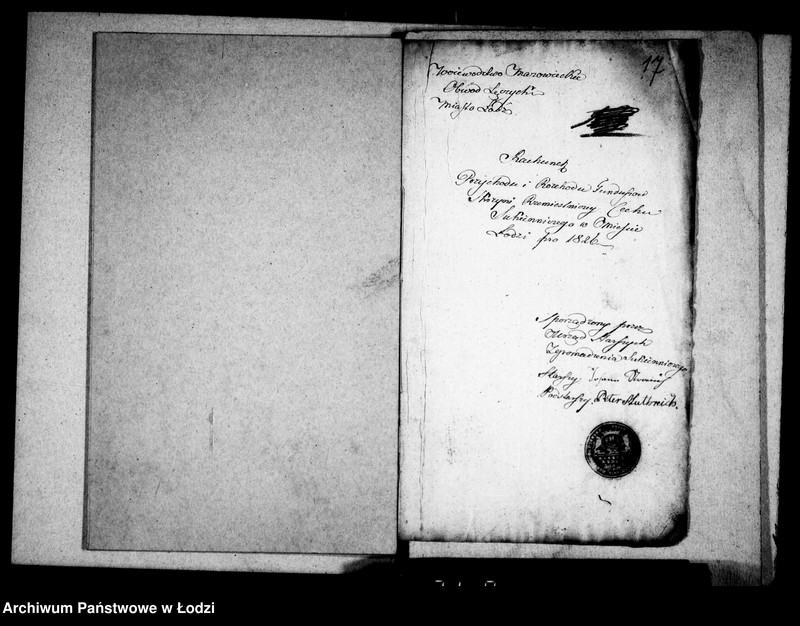 17
Woiewodztwo Mazowieckie
Obwód Łęczycki
Miasto Łódź
Rachunek
Przychodu i Rozchodu Funduszow
Skrzyni Rzemieślniczy Cechu
Sukienniczego w Mieście
Łodzi pro 1826
Sporządzony przez
Urząd Starszych
Zgromadzenia Sukienniczego
Starszy
Podstarszy Peter
Archiwum Państwowe w Łodzi